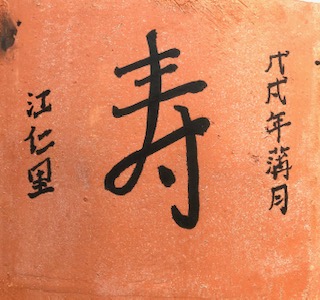 戊戌年蒲月
寿
江仁里